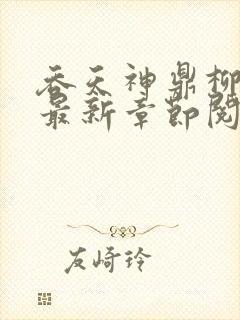 吞天神鼎柳
最新章节阅
友崎玲